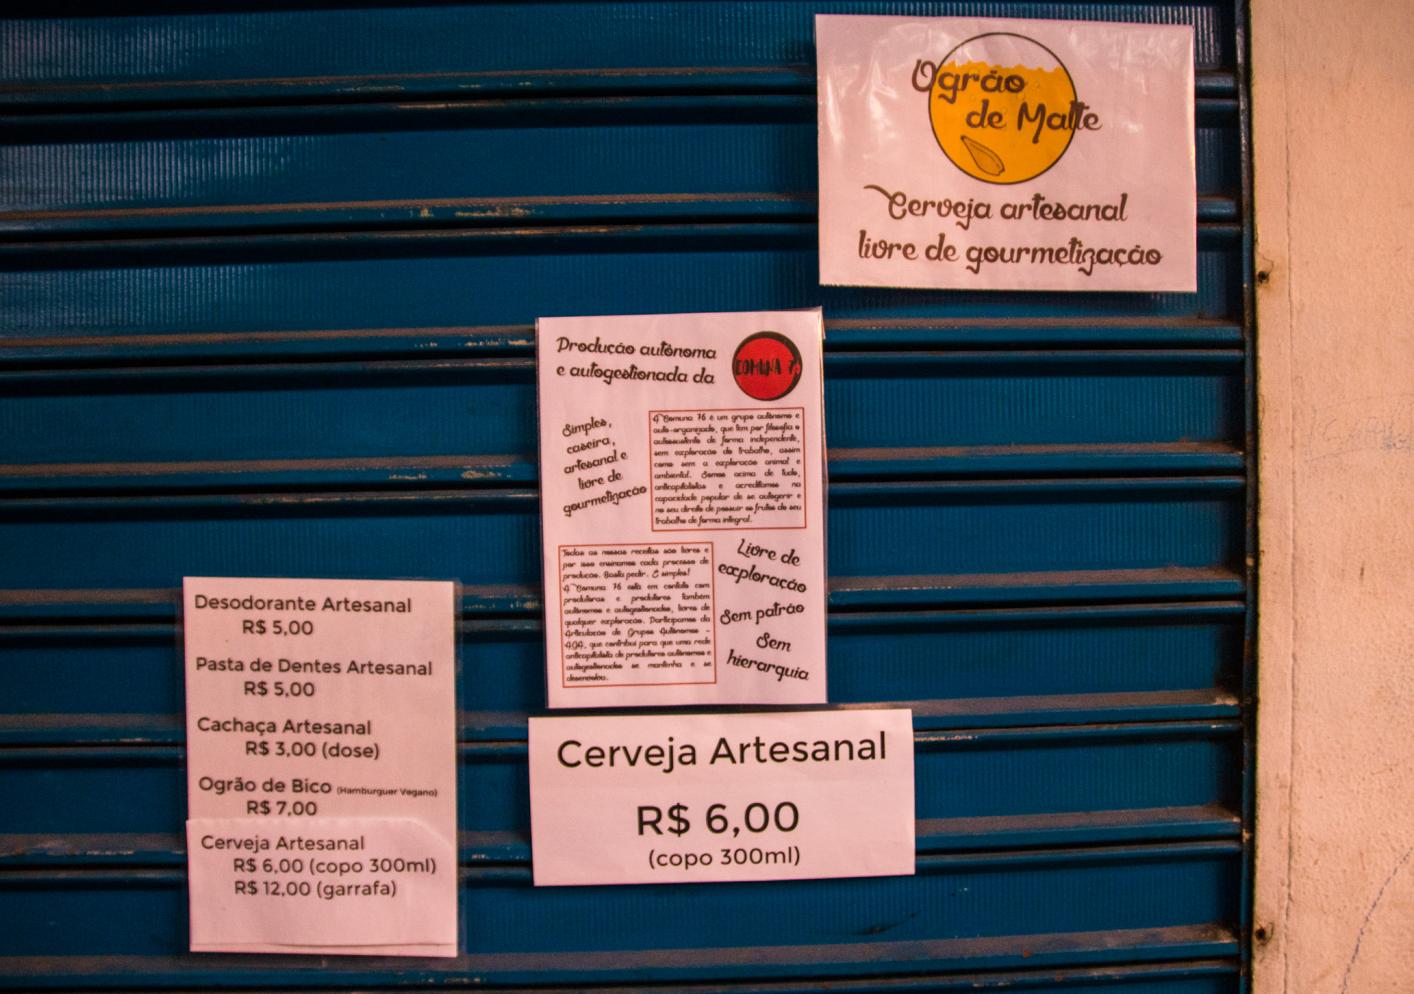 Ogrão
de Malte
Cerveja artesanal
livre de gourmetização
Produção autônoma
e autogestionada da
COMUNA 76
Simples,
caseira,
artesanal e
livre de
gourmetização
A Comuna 76 é um grupo autônomo e
auto-organizado, que tem por filosofia o
autossustento de forma independente,
sem exploração do trabalho, assim
como sem a exploração animal e
ambiental. Somos acima de tudo,
anticapitalistas e acreditamos na
capacidade popular de se autogerir e
no seu direito de possuir os frutos do seu
trabalho de forma integral.
Todas as nossas receitas são livres e
por isso ensinamos cada processo de
produção. Basta pedir. É simples!
A Comuna 76 está em contato com
produtoras e produtores também
autônomos e autogestionados, livres de
qualquer exploração. Participamos da
Articulação de Grupos Autônomos -
AGA, que contribui para que uma rede
anticapitalista de produtores autônomos e
autogestionados se mantenha e se
desenvolva.
Livre de
exploração
Sem patrão
Sem
hierarquia
Desodorante Artesanal
R$ 5,00
Pasta de Dentes Artesanal
R$ 5,00
Cachaça Artesanal
R$ 3,00 (dose)
Ogrão de Bico (Hamburguer Vegano)
R$ 7,00
Cerveja Artesanal
R$ 6,00 (copo 300ml)
R$ 12,00 (garrafa)
Cerveja Artesanal
R$ 6,00
(copo 300ml)